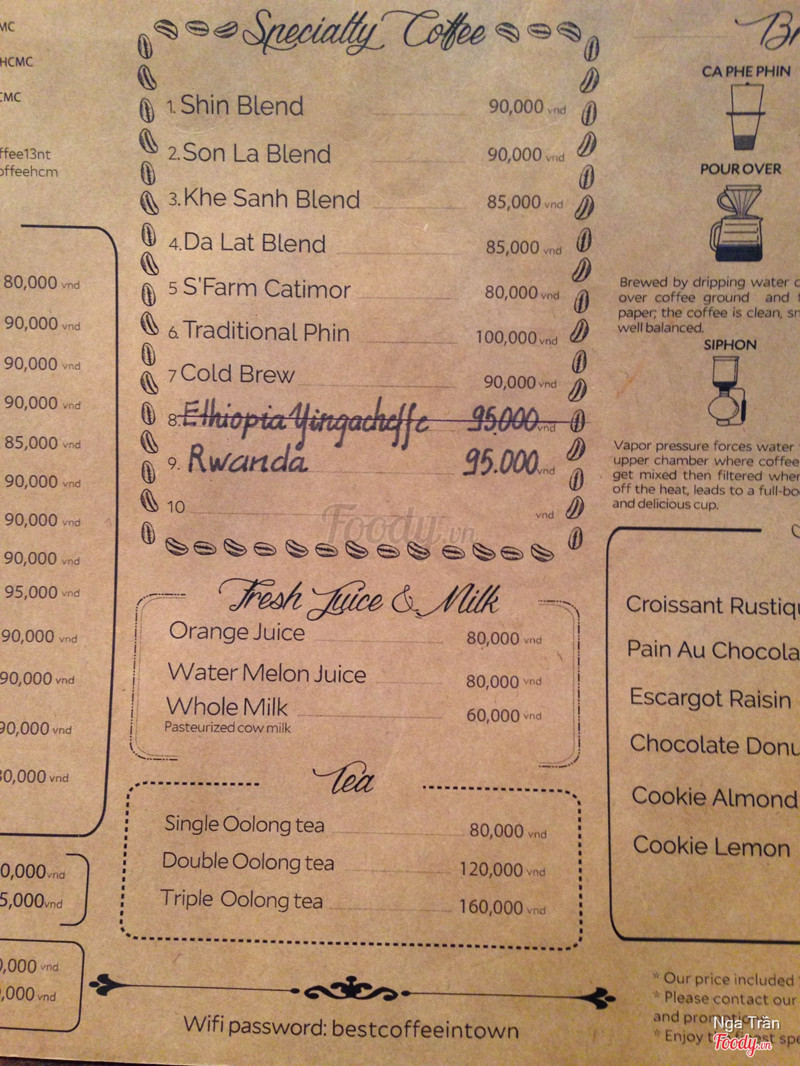 MC
HCMC
CMC
ffee13nt
offeehcm
80,000 vnd
90,000 vnd
90,000 vnd
90,000 vnd
85,000 vnd
90,000 vnd
90,000 vnd
90,000 vnd
95,000 vnd
90,000 vnd
90,000 vnd
90,000 vnd
80,000 vnd
0,000 vnd
5,000 vnd
0,000 vnd
,000 vnd
Specialty Coffee
1. Shin Blend 90,000 vnd
2. Son La Blend 90,000 vnd
3. Khe Sanh Blend 85,000 vnd
4. Da Lat Blend 85,000 vnd
5 S'Farm Catimor 80,000 vnd
6. Traditional Phin 100,000 vnd
7 Cold Brew 90,000 vnd
8. Ethiopia Yingacheffe 95.000 vnd
9. Rwanda 95.000 vnd
10 vnd
Foody.vn
Fresh Juice & Milk
Orange Juice 80,000 vnd
Water Melon Juice 80,000 vnd
Whole Milk 60,000 vnd
Pasteurized cow milk
Tea
Single Oolong tea 80,000 vnd
Double Oolong tea 120,000 vnd
Triple Oolong tea 160,000 vnd
Wifi password: bestcoffeeintown
Br
CA PHE PHIN
POUR OVER
Brewed by dripping water
over coffee ground and
paper; the coffee is clean, sm
well balanced.
SIPHON
Vapor pressure forces water
upper chamber where coffee
get mixed then filtered when
off the heat, leads to a full-bo
and delicious cup.
Croissant Rustiqu
Pain Au Chocola
Escargot Raisin
Chocolate Donu
Cookie Almond
Cookie Lemon
* Our price included
* Please contact our
and promo
* Enjoy
Nga Trần
Foody.vn